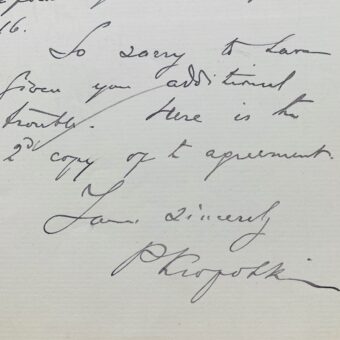 16.
So sorry to have
given you additional
trouble. Here is the
2d copy of t agreement.
Yours sincerely
P Kropotkin